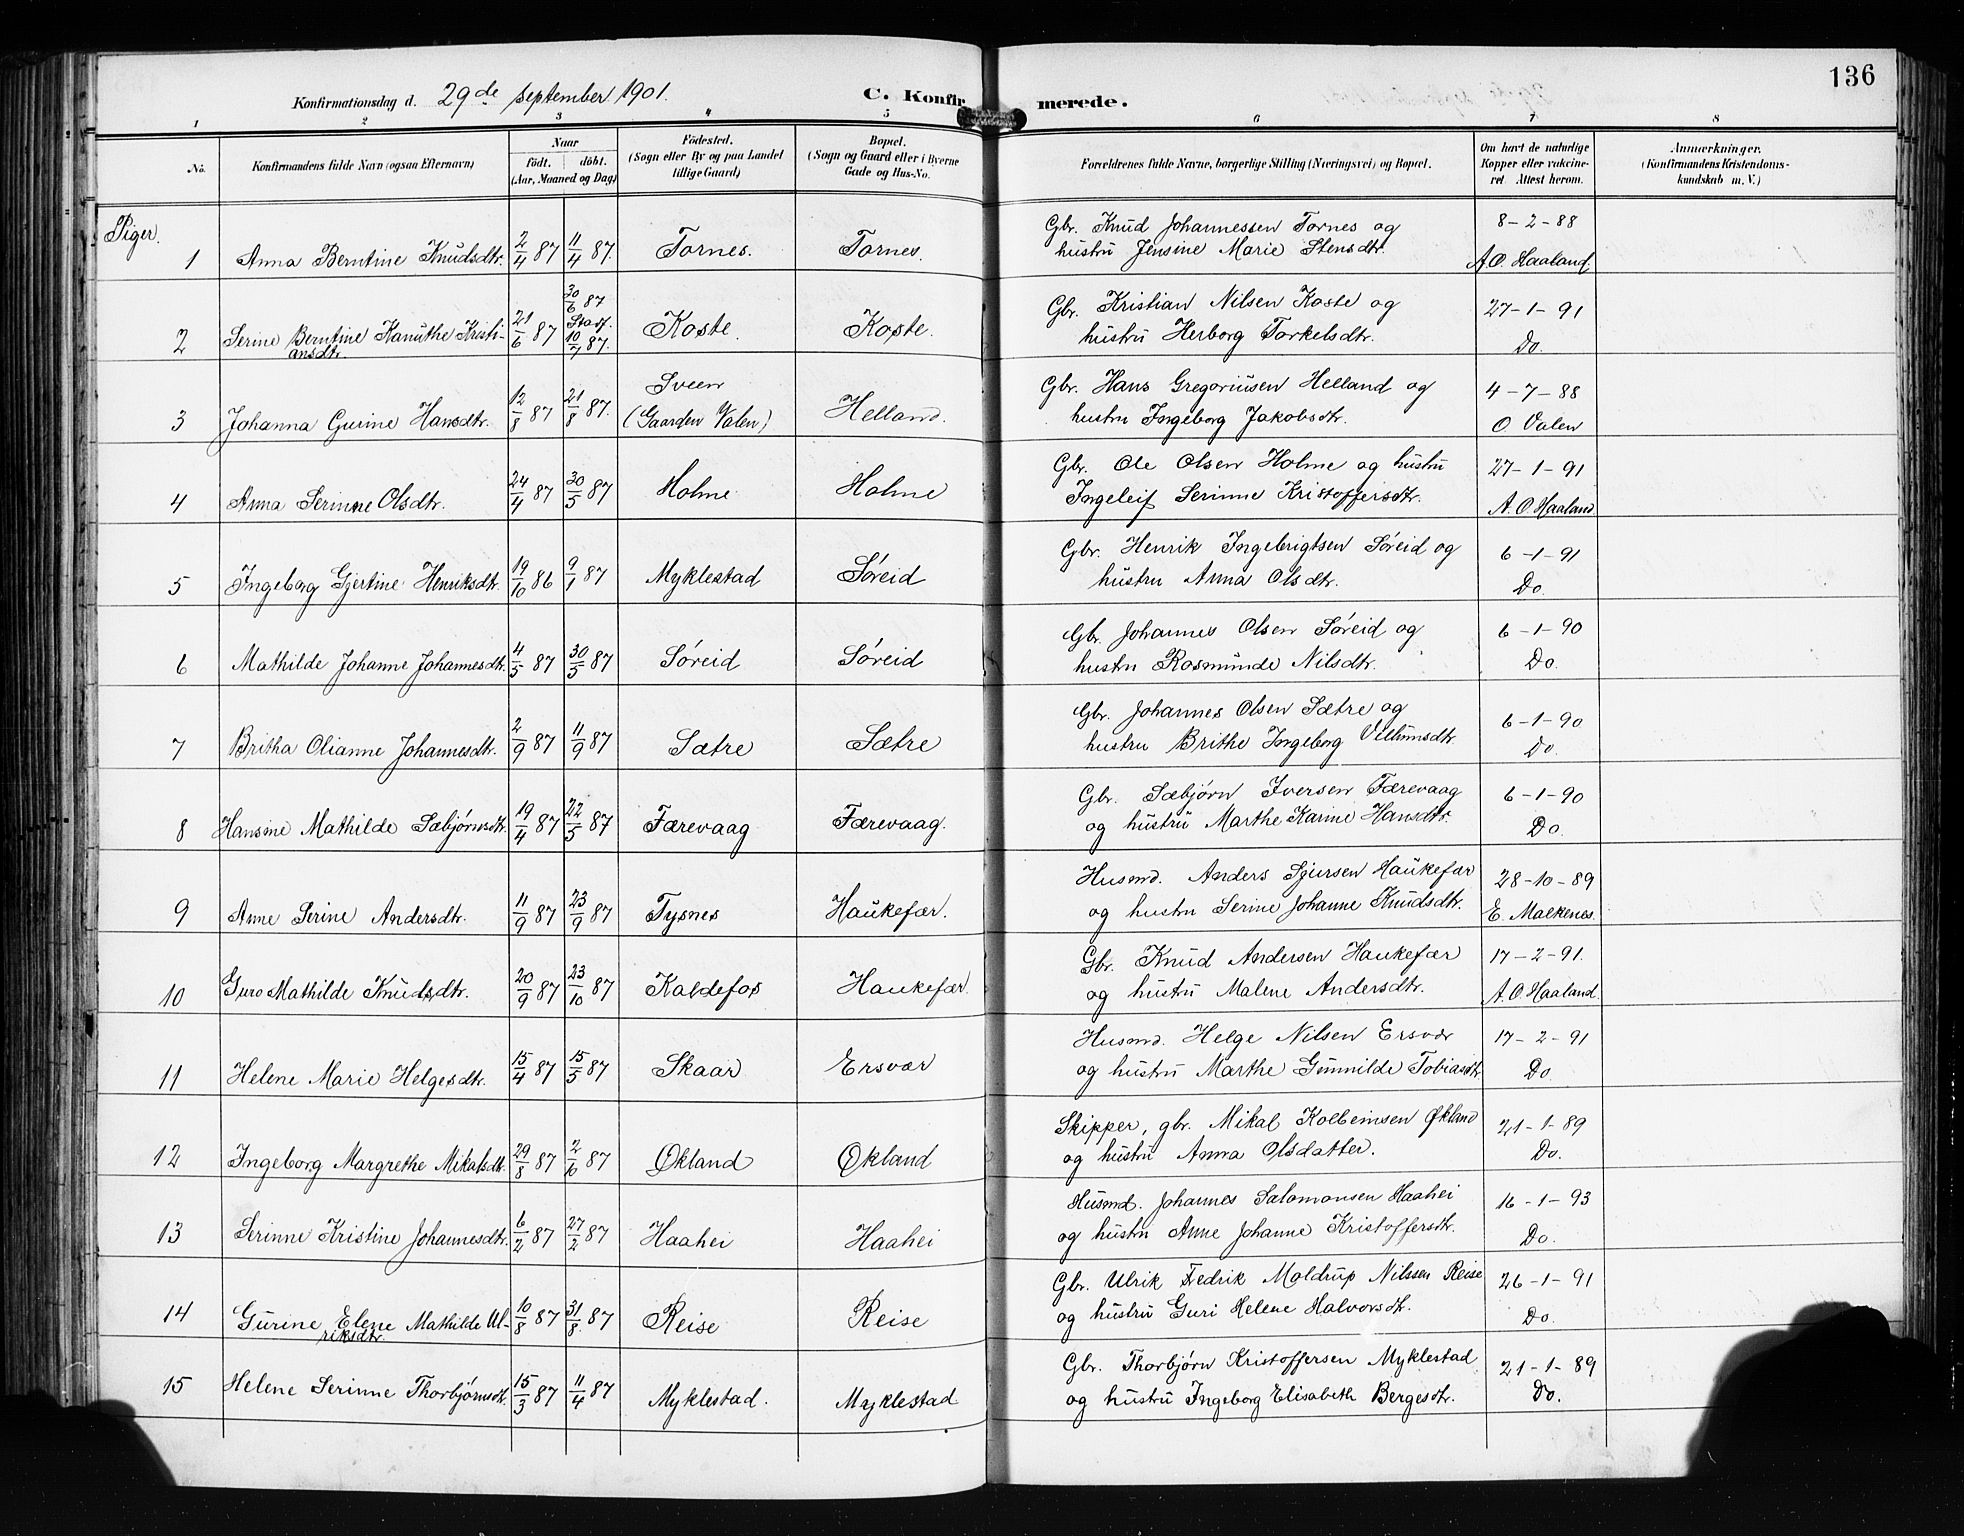 136
Konfirmationsdag d. 29de september 1901. C. Konfirmerede.
1 2 3 4 5 6 7 8
No. Konfirmandens fulde Navn (ogsaa Efternavn) Naar født. døbt. (Aar, Maaned og Dag) Fødested. (Sogn eller By og paa Landet tillige Gaard) Bopæl. (Sogn og Gaard eller i Byerne Gade og Hus-No. Forældrenes fulde Navne, borgerlige Stilling (Næringsvei) og Bopæl. Om havt de naturlige Kopper eller vaccineret Attest herom. Anmerkninger. (Konfirmandens Kristendomskundskab m. V.)
Piger.
1 Anna Berntine Knudsdtr. 2/4 87 11/4 87. Tornes. Tornes. Gbr. Knud Johannessen Tornes og 8-2-88
hustru Jensine Marie Stensdtr. A.O. Haaland.
2 Serine Berntine Kanuthe Kristiansdtr 21/6 87 30/6 87 Stadf. 10/7 87. Koste Koste. Gbr. Kristian Nilsen Koste og 27-1-91
hustru Herborg Torkelsdtr. Do.
3 Johanna Gurine Hansdtr. 12/8 87 21/8 87. Sveen (Gaarden Valen) Helland. Gbr. Hans Gregoriusen Helland og 4-7-88
hustru Ingeborg Jakobsdtr. O. Valen
4 Anna Serinne Olsdtr. 24/4 87 30/5 87 Holme Holme Gbr. Ole Olsen Holme og hustru 27-1-91
Ingeleif Serinne Kristoffersdtr. A.O. Haaland
5 Ingeborg Gjertine Henriksdtr. 19/10 86 9/1 87 Myklestad Søreid Gbr. Henrik Ingebrigtsen Søreid og 6-1-91
hustru Anna Olsdtr. Do.
6 Mathilde Johanne Johannesdtr. 4/5 87 30/5 87 Søreid Søreid Gbr. Johannes Olsen Søreid og 6-1-90
hustru Rosmunde Nilsdtr. Do.
7 Britha Olianne Johannesdtr. 2/9 87 11/9 87 Sætre Sætre Gbr. Johannes Olsen Sætre og 6-1-90
hustru Brithe Ingeborg Do.
8 Hansine Mathilde Sæbjørnsdtr. 19/4 87 22/5 87 Færevaag Færevaag. Gbr. Sæbjørn Iversen Færevaag 6-1-90
og hustru Marthe Karine Hansdtr. Do.
9 Anne Serine Andersdtr. 11/9 87 23/9 87 Tysnes Haukefær. Husmd. Anders Sjursen Haukefær 28-10-89
og hustru Serine Johanne Knudsdtr. E. Malkenes.
10 Guro Mathilde Knudsdtr. 20/9 87 23/10 87 Kaldefos Haukefær. Gbr. Knud Andersen Haukefær 17-2-91.
og hustru Malene Andersdtr. A.O. Haaland.
11 Helene Marie Helgesdtr. 15/4 87 15/5 87 Skaar Ersvær Husmd. Helge Nilsen Ersvær 17-2-91
og hustru Marthe Gunnilde Tobiasdtr. Do
12 Ingeborg Margrethe Mikalsdtr. 29/8 87 2/10 87 Økland Økland Skipper, gbr. Mikal Kolbeinsen Økland 21-1-89
og hustru Anna Olsdatter. Do.
13 Serinne Kristine Johannesdtr. 6/2 87 27/2 87 Haahei Haahei Husmd. Johannes Salomonsen Haahei 16-1-93
og hustru Anne Johanne Kristoffersdtr. Do.
14 Gurine Elene Mathilde Ulriksdtr. 10/8 87 31/8 87 Reise Reise Gbr. Ulrik Fredrik Moldrup Nilssen Reise 26-1-91
og hustru Guri Helene Halvorsdtr. Do.
15 Helene Serinne Thorbjørnsdtr. 15/3 87 11/4 87 Myklestad. Myklestad Gbr. Thorbjørn Kristoffersen Myklestad 21-1-89
og hustru Ingeborg Elisabeth Bergesdtr. Do.